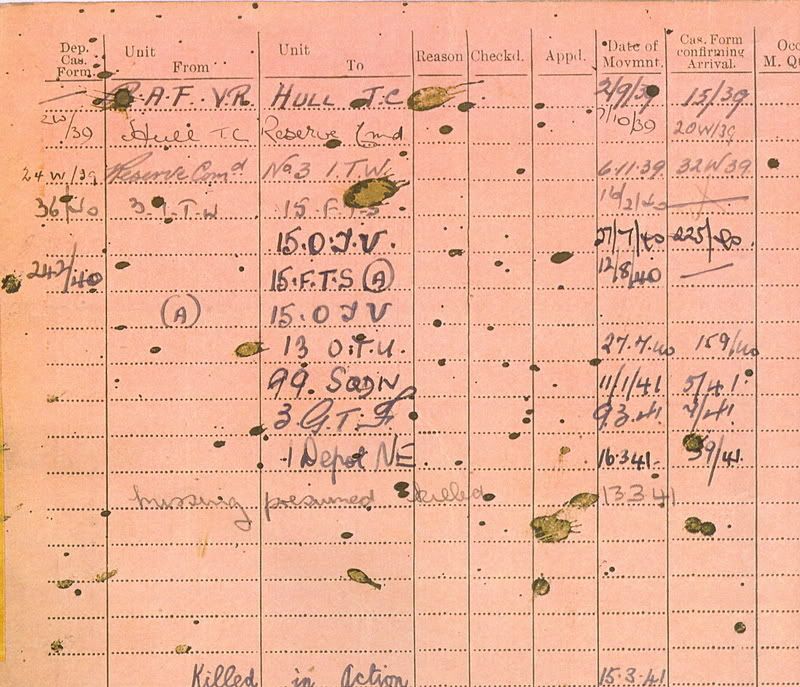 Dep. Cas. Form. Unit From Unit To Reason Checkd. Appd. Date of Movmnt. Cas. Form confirming Arrival. Occ M. Qu
— R.A.F. V.R. HULL T.C 2/9/39 15/39
2W/39 Hull T.C Reserve Cmd 7/10/39 20W/39
24W/39 Reserve Comd No 3 I.T.W 6.11.39 32W39
36/40 3.I.T.W 15.F.T.S 16/2/40
15.O.T.U. 27/7/40 225/40.
242/40 15.F.T.S (A) 12/8/40 —
(A) 15.O.T.U
13 O.T.U. 27.7.40 159/40
99. SQDN 11/1/41 5/41.
3.G.T.F 9.3.41 7/41
1 Depot NE 16.3.41. 39/41.
missing presumed killed 13.3.41
Killed in Action 15.3.41